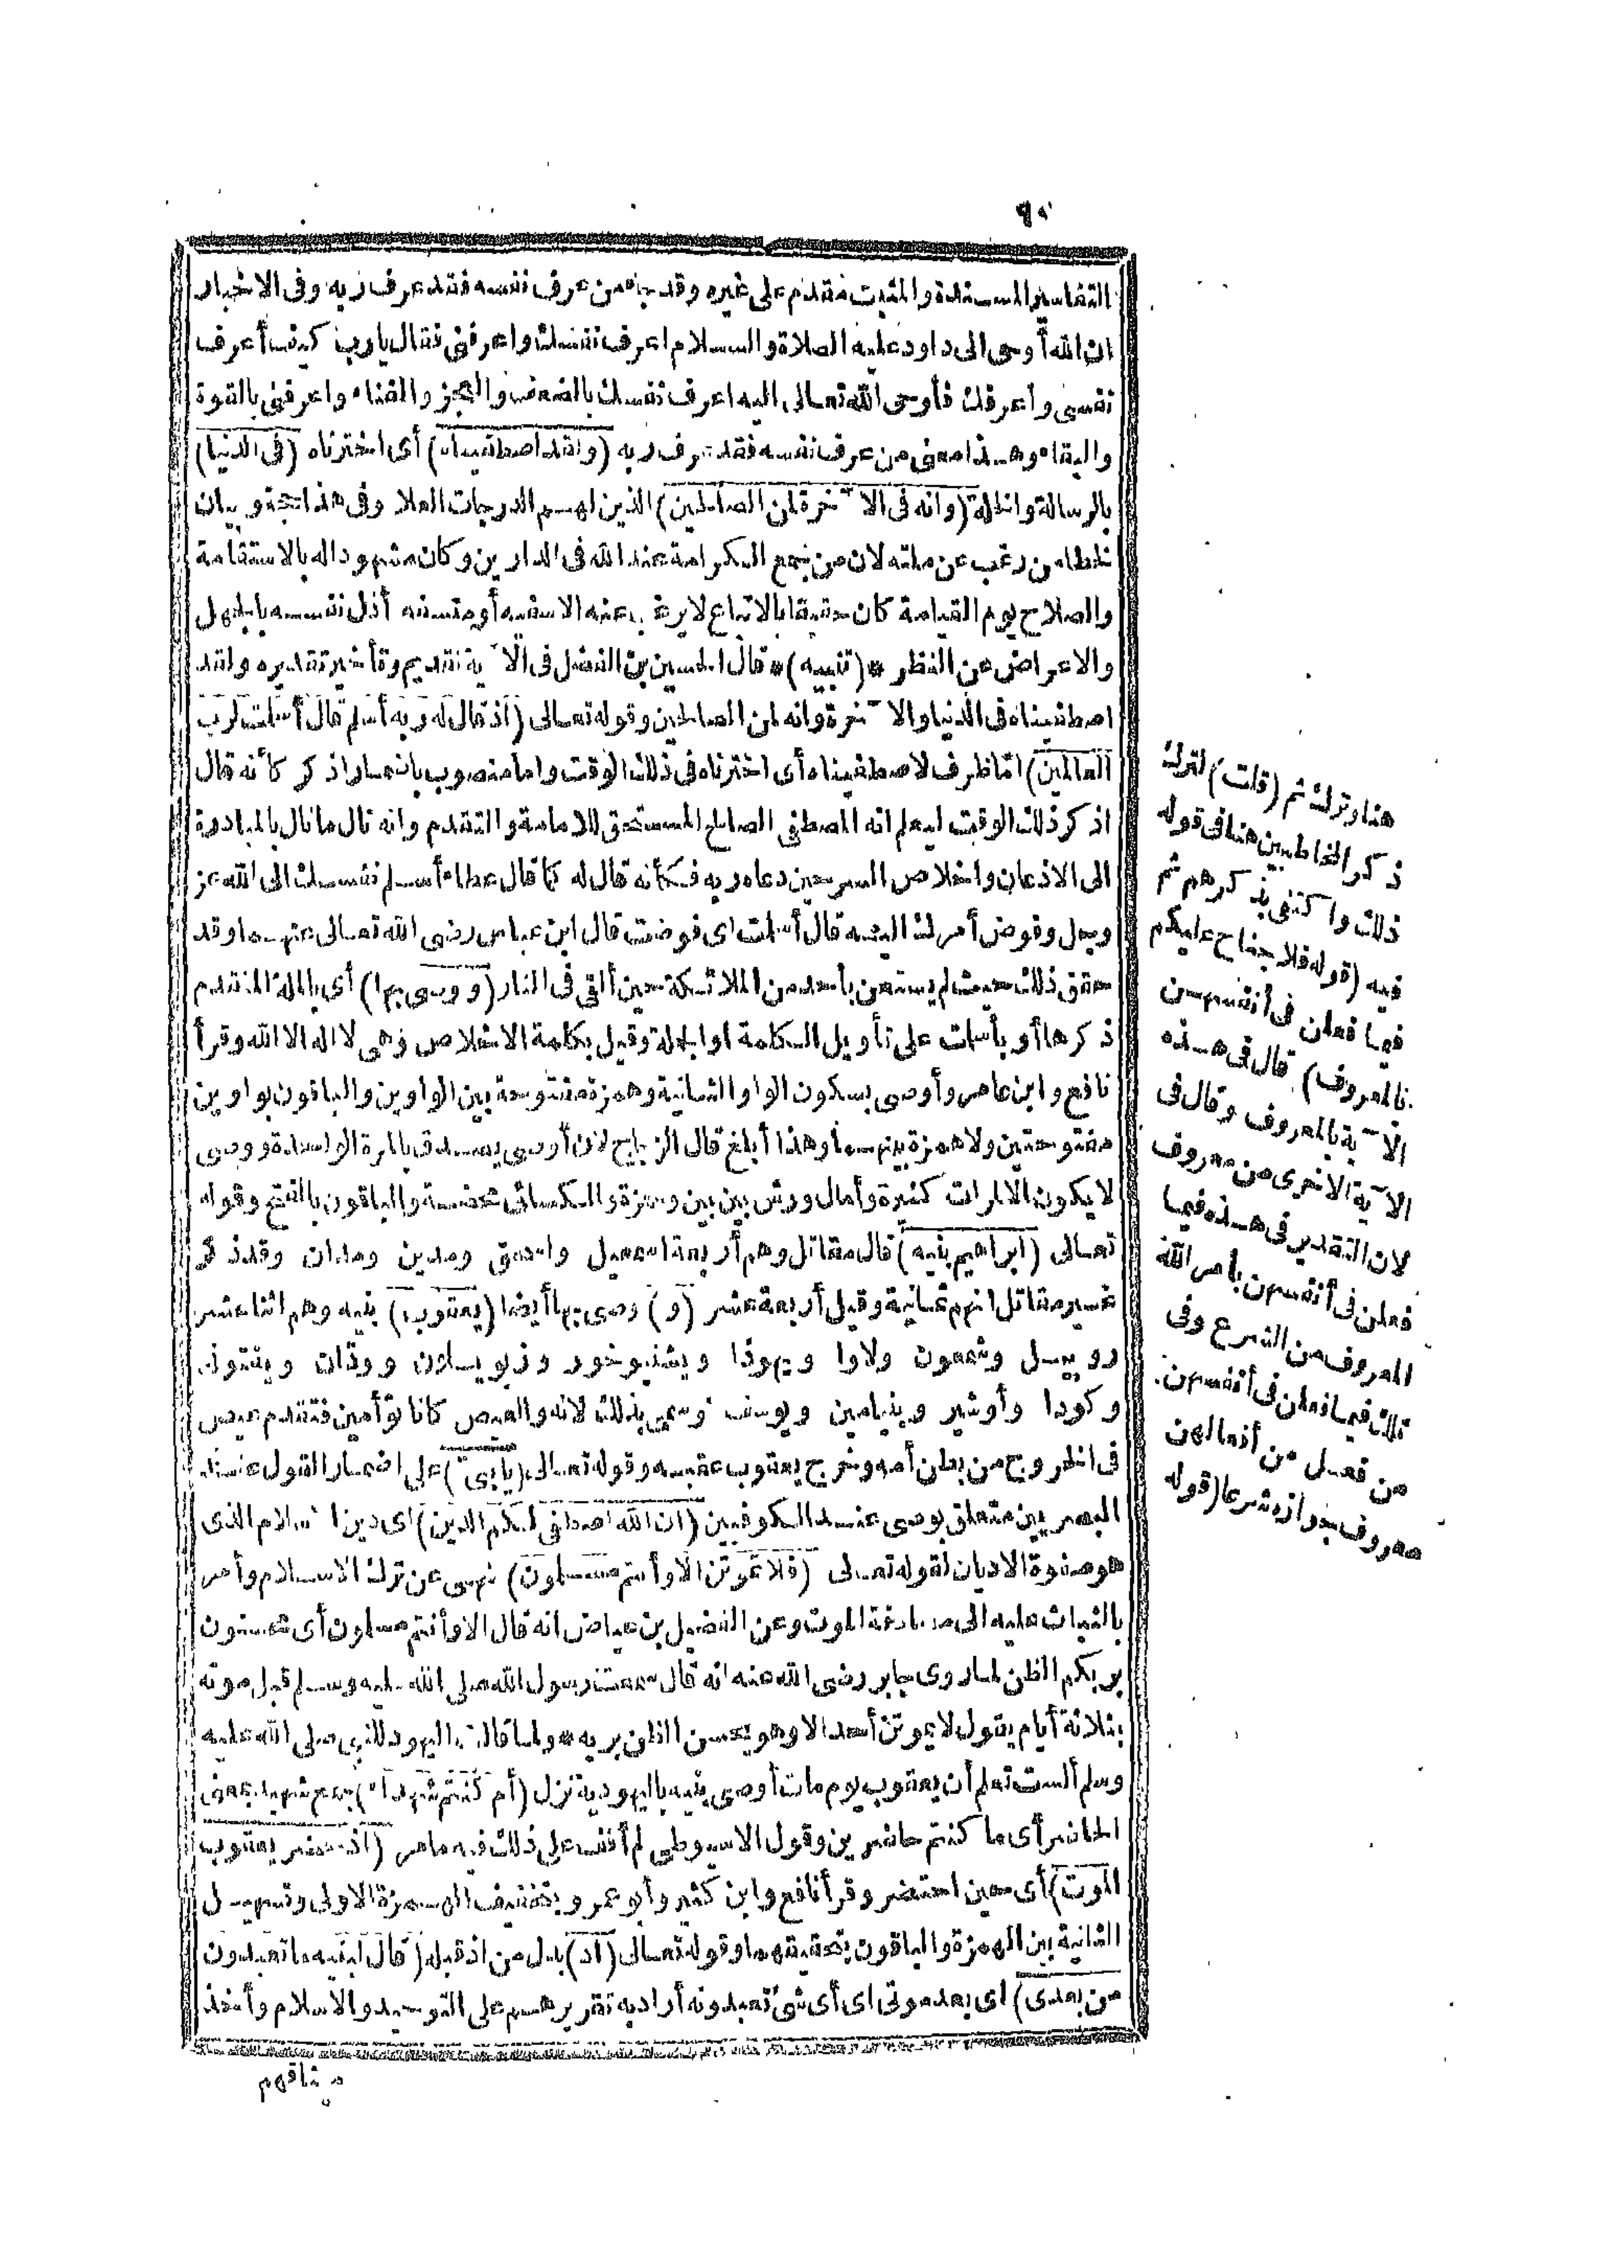 ٩٠
التفاسير المسندة والمثبت مقدم على غيره وقد جاء من عرف نفسه فقد عرف ربه وفى الاخبار
ان الله أوحى الى داود عليه الصلاة والسلام اعرف نفسك واعرفنى فقال يارب كيف أعرف
نفسى وأعرفك فأوحى الله تعالى اليه اعرف نفسك بالضعف والعجز والفناء واعرفنى بالقوة
والبقاء وهذا معنى من عرف نفسه فقد عرف ربه (ولقد اصطفيناه) أى اخترناه (فى الدنيا)
بالرسالة والخلة (وانه فى الآخرة لمن الصالحين) الذين لهم الدرجات العلا وفى هذا حجة وبيان
لخطا من رغب عن ملته لان من جمع الكرامة عند الله فى الدارين وكان مشهودا له بالاستقامة
والصلاح يوم القيامة كان حقيقا بالاتباع لا يرغب عنه الا سفيه أو متسفه أذل نفسه بالجهل
والاعراض عن النظر *(تنبيه)* قال الحسين بن الفضل فى الآية تقديم وتأخير تقديره ولقد
اصطفيناه فى الدنيا والآخرة وانه لمن الصالحين وقوله تعالى (اذ قال له ربه أسلم قال أسلمت لرب
العالمين) اما ظرف لاصطفيناه أى اخترناه فى ذلك الوقت واما منصوب باضمار اذكر كأنه قال
اذكر ذلك الوقت ليعلم انه المصطفى الصالح المستحق للامامة والتقدم وانه نال ما نال بالمبادرة
الى الاذعان واخلاص السر حين دعاه ربه فكأنه قال له كما قال عطاء أسلم نفسك الى الله عز
وجل وفوض أمرك اليه قال أسلمت اى فوضت قال ابن عباس رضى الله تعالى عنهما وقد
حقق ذلك حيث لم يستعن بأحد من الملائكة حين ألقى فى النار (ووصى بها) أى بالملة المتقدم
ذكرها أو بأسلمت على تأويل الكلمة او الجملة وقيل بكلمة الاخلاص وهى لا اله الا الله وقرأ
نافع وابن عامر وأوصى بسكون الواو الثانية وهمزة مفتوحة بين الواوين والباقون بواوين
مفتوحتين ولا همزة بينهما وهذا أبلغ قال الزجاج لان أوصى يصدق بالمرة الواحدة ووصى
لا يكون الا لمرات كثيرة وأمال ورش بين بين وحمزة والكسائى محضة والباقون بالفتح وقوله
تعالى (ابراهيم بنيه) قال مقاتل وهم أربعة اسمعيل واسحق ومدين ومدان وقد ذكر
غير مقاتل انهم ثمانية وقيل أربعة عشر (و) وصى بها أيضا (يعقوب) بنيه وهم اثنا عشر
روبيل وشمعون ولاوا ويهوذا ويشنيوخور وزبويلون وودان ويفتوذ
وكودا وأوشير وبنيامين ويوسف وسمى بذلك لانه والعيص كانا توأمين فتقدم عيص
فى الخروج من بطن أمه وخرج يعقوب عقبه وقوله تعالى (يابنى) على اضمار القول عند
البصريين متعلق بوصى عند الكوفيين (ان الله اصطفى لكم الدين) اى دين الاسلام الذى
هو صفوة الاديان لقوله تعالى (فلا تموتن الا وأنتم مسلمون) نهى عن ترك الاسلام وأمر
بالثبات عليه الى مصادفة الموت وعن الفضيل بن عياض انه قال الا وأنتم مسلمون أى محسنون
بربكم الظن لما روى جابر رضى الله عنه انه قال سمعت رسول الله صلى الله عليه وسلم قبل موته
بثلاثة أيام يقول لا يموتن أحد الا وهو يحسن الظن بربه * ولما قالت اليهود للنبى صلى الله عليه
وسلم ألست تعلم أن يعقوب يوم مات أوصى بنيه باليهودية نزل (أم كنتم شهداء) جمع شهيد بمعنى
الحاضر أى ما كنتم حاضرين وقول الاسيوطى لم أقف على ذلك فيه ما مر (اذ حضر يعقوب
الموت) أى حين احتضر وقرأ نافع وابن كثير وأبو عمرو بتخفيف الهمزة الاولى وتسهيل
الثانية بين الهمزة والباقون بتحقيقهما وقوله تعالى (اذ) بدل من اذ قبله (قال لبنيه ما تعبدون
من بعدى) اى بعد موتى اى أى شئ تعبدونه أراد به تقريرهم على التوحيد والاسلام وأخذ
ميثاقهم
هنا وترك ثم (قلت) لترك
ذكر المخاطبين هنا فى قوله
ذلك واكتفى بذكرهم ثم
فيه (قوله فلا جناح عليكم
فيما فعلن فى أنفسهن
بالمعروف) قال فى هذه
الآية بالمعروف وقال فى
الآية الاخرى من معروف
لان التقدير فى هذه فيما
فعلن فى أنفسهن بامر الله
المعروف من الشرع وفى
تلك فيما فعلن فى أنفسهن
من فعل من أفعالهن
معروف جوازه شرعا (قوله